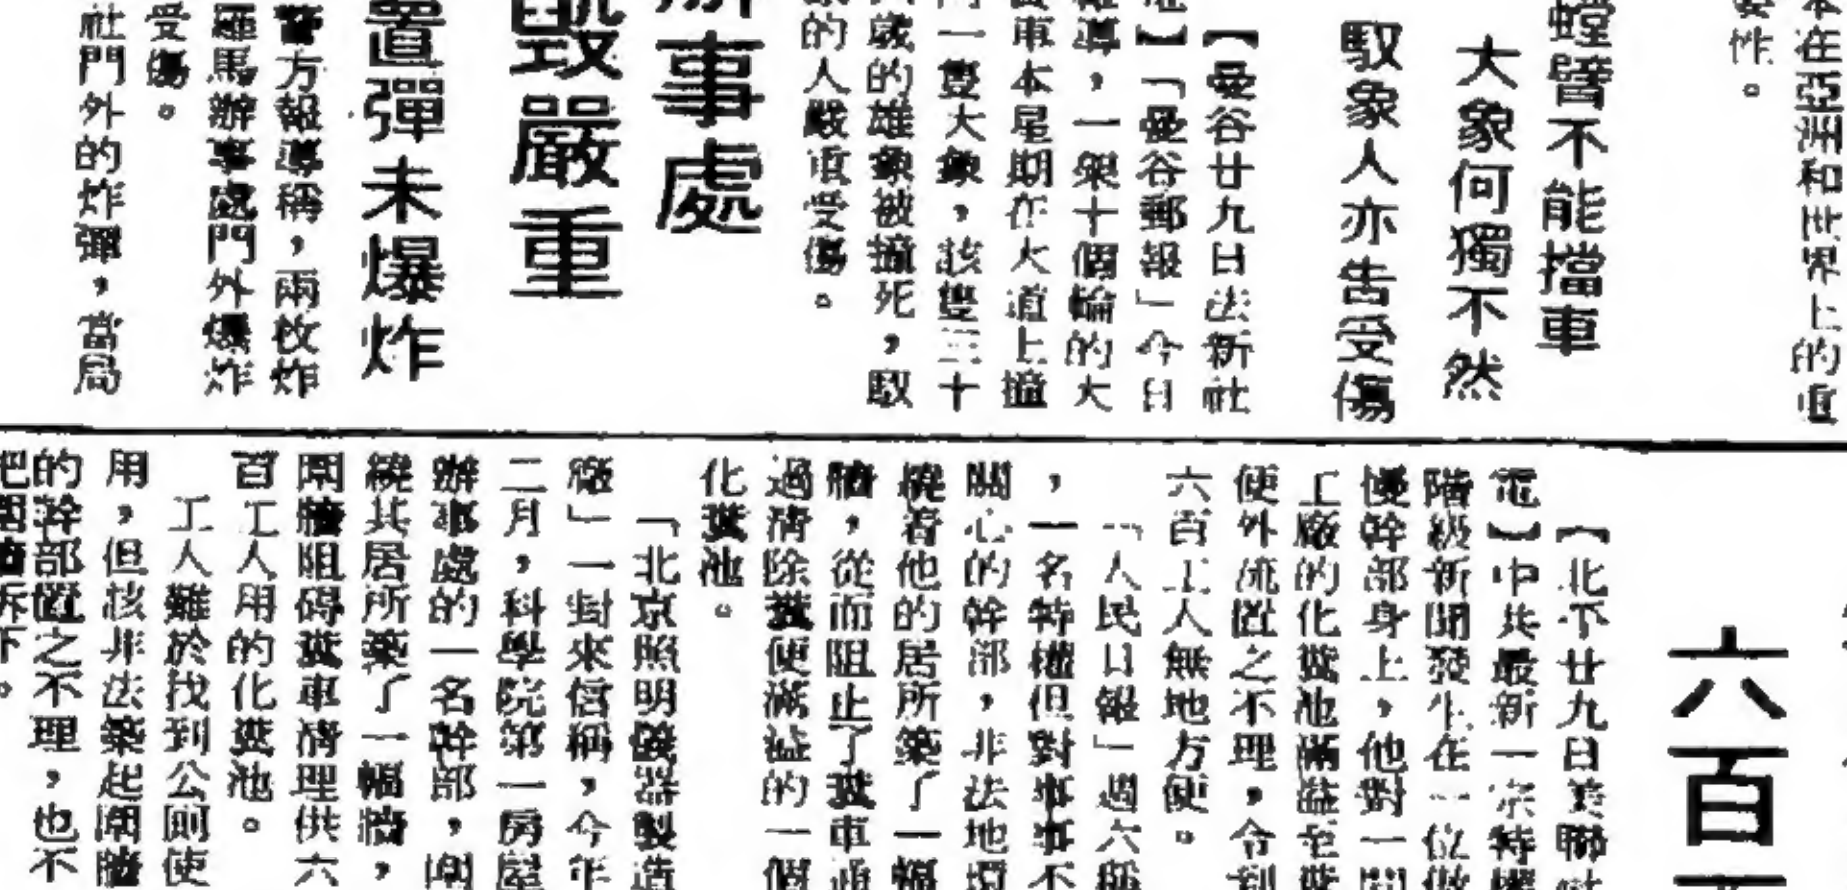 本在亞洲和世界上的重
要性。
螳臂不能擋車
大象何獨不然
馭象人亦告受傷
【曼谷廿九日法新社
】「曼谷郵報」今日
報導，一架十個輪的大
車本星期在大道上撞
一隻大象，該隻三十
歲的雄象被撞死，馭
的人嚴重受傷。
辦事處
毀嚴重
置彈未爆炸
警方報導稱，兩枚炸
羅馬辦事處門外爆炸
受傷。
社門外的炸彈，當局
六百
【北平廿九日美聯社
電】中共最新一宗特權
階級新聞發生在一位傲
慢幹部身上，他對一間
工廠的化糞池滿溢至糞
便外流置之不理，令到
六百工人無地方便。
「人民日報」週六稱
，一名特權但對事事不
關心的幹部，非法地環
繞着他的居所築了一幅
牆，從而阻止了糞車通
過清除糞便滿溢的一個
化糞池。
「北京照明儀器製造
廠」一封來信稱，今年
二月，科學院第一房屋
辦事處的一名幹部，圍
繞其居所築了一幅牆，
圍牆阻碍糞車清理供六
百工人用的化糞池。
工人難於找到公廁使
用，但該非法築起圍牆
的幹部置之不理，也不
把圍牆拆下。